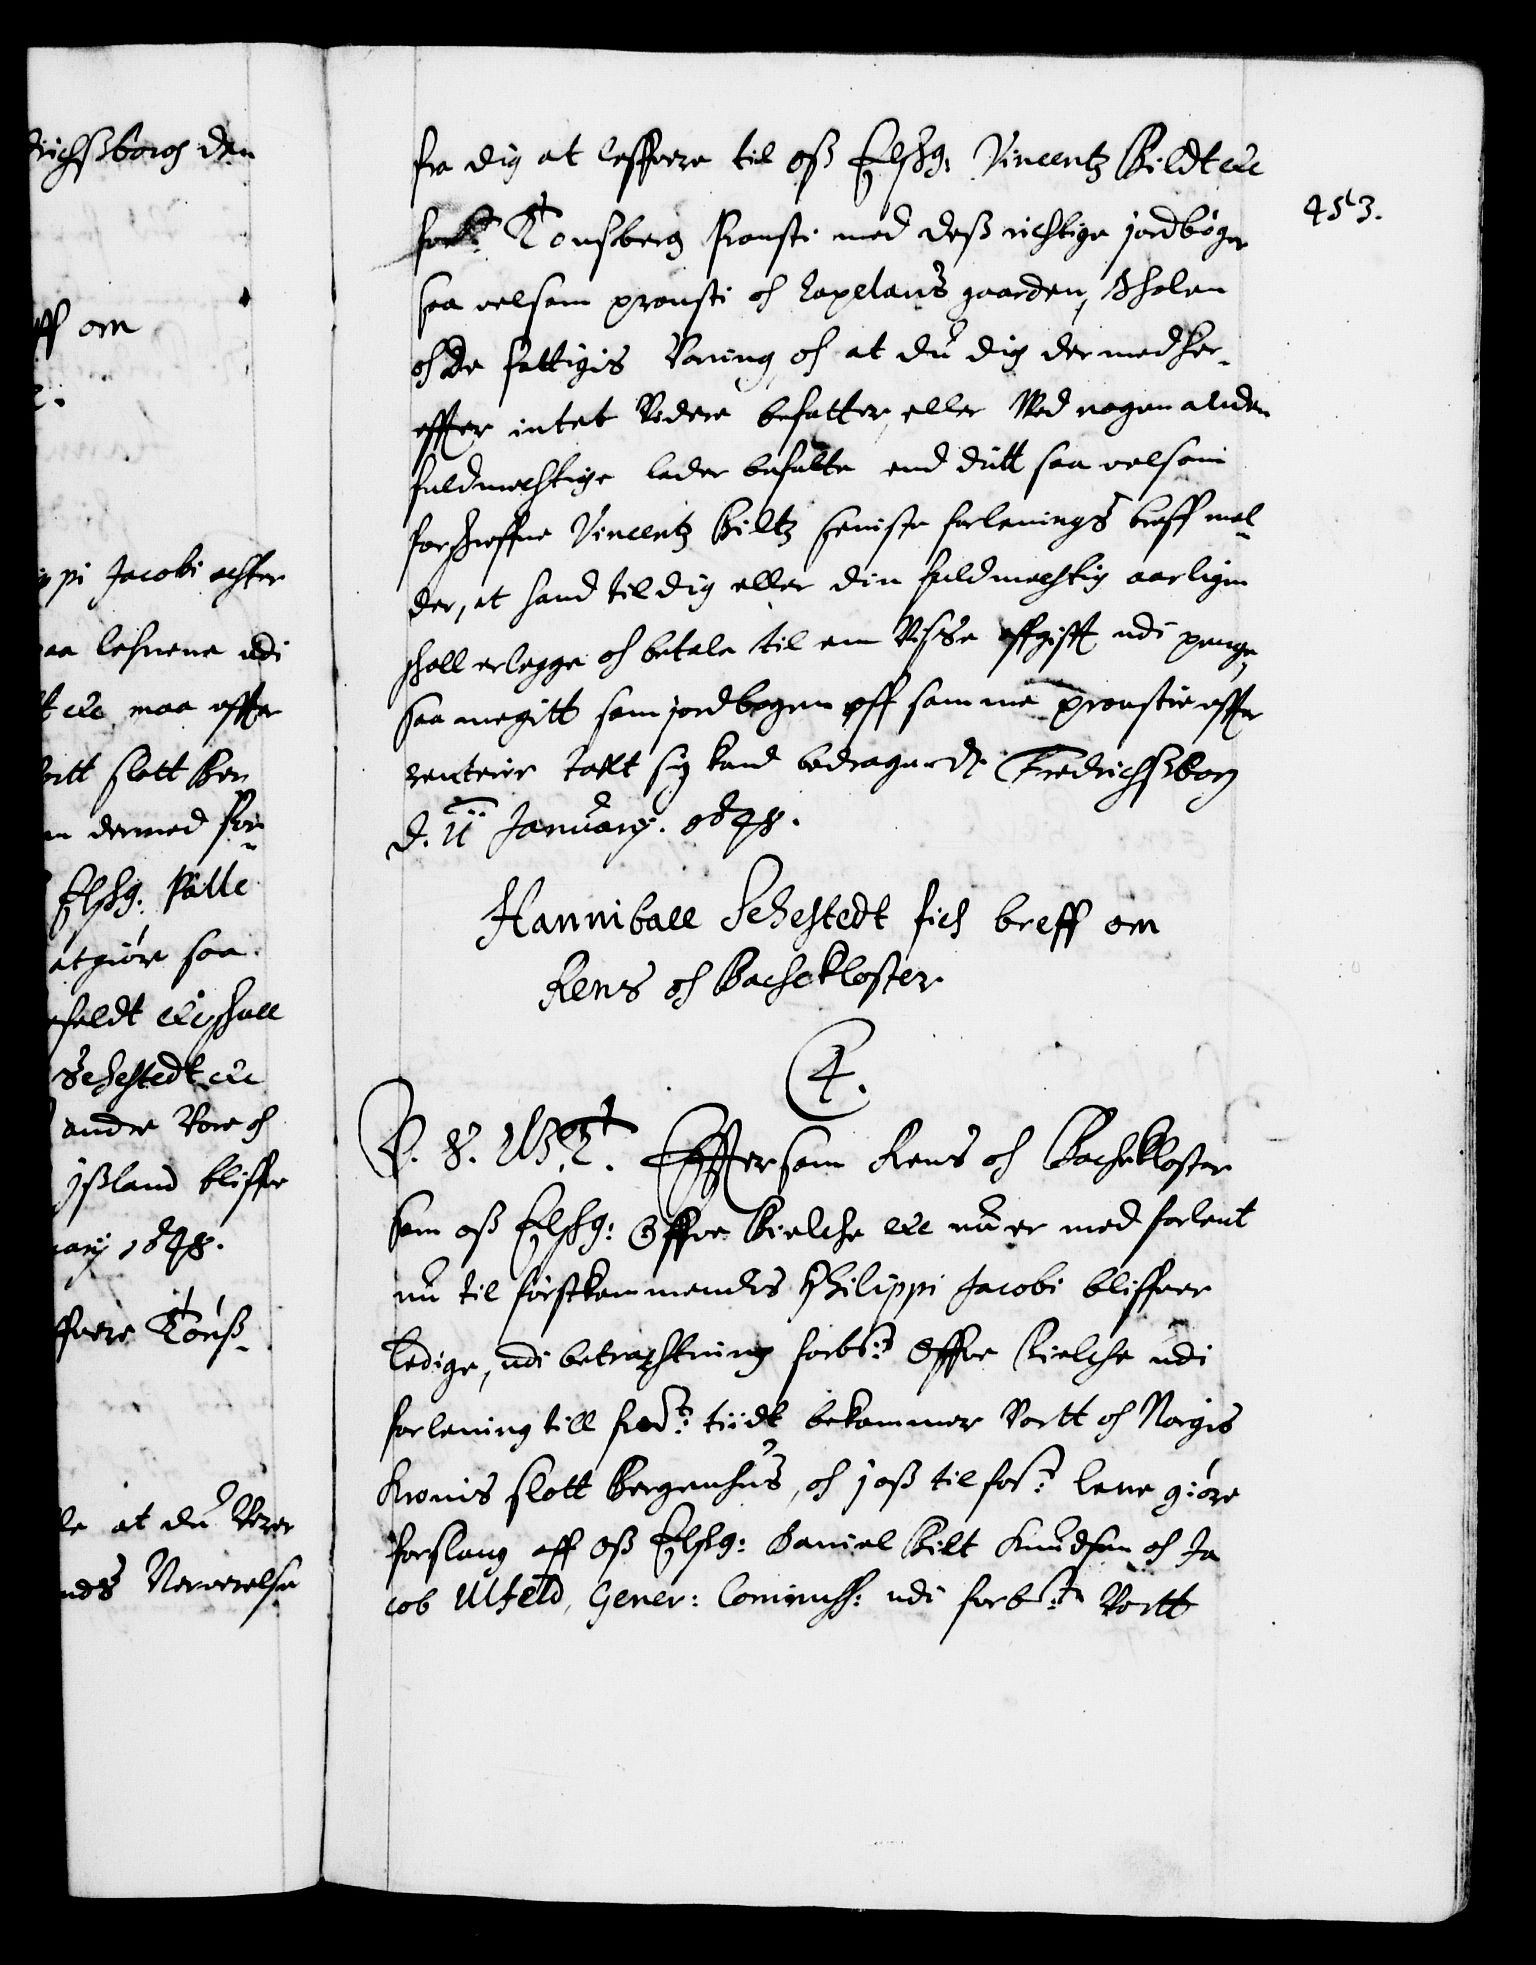 drichsborg den
ff om
ippi Jacobi efter
paa lehnene udi
t etc maa effter
vortt slott Ber
en dermed for¬
Elsch: Palle
at giøre saa.
feldt etc schall
Sehestedt etc
andre Vore och
ißland bliffue
uarij 1648.
ffuere Tonß¬
lle at du Verer
nds Nerverelse
453.
fra dig at leffuere til oß Elsch: Vincentz Bildt etc
forbt: Tonsberg Prousti med deß richtige jordbøger
saa velsom prousti och Capelans gaarden, Scholen
och de fattigis Vaaning, och at du dig dermed her¬
effter intet Videre befatter, eller Ved nogen anden
fuldmechtige lader befatte end ditt saa velsom
forschreffne Vincentz Biltz seniste forlenings breff mel¬
der, at hand til dig eller din fuldmechtig aarligen
schall erlegge och betale til en Visse affgifft udi penge,
saa megitt som jordbogen off samme proustie effter
renteries taxt sig kand bedrage. Dt. Fredrichsborg
d. 11 January. 1648.
Hanniball Sehestedt fich breff om
Rens och Bachekloster
4.
C. 4. W. G. T. Efftersom Rens och Bachekloster
som oß Elsch: Offue Bielche etc nu er med forlent
nu til førstkommendes Philippi Jacobi bliffuer
ledige, udi betrachtning forbt: Offue Bielche udi
forlening till fordt: tiidt bekommer Vortt och Norgis
Kronis slott Bergenhus, och j oß til forbt: lene giøre
forslaug aff Oß Elsch: Daniel Bilt Knudsen och Ja
cob Ulfeld, Gener: Commiss: udi forbt: Vortt